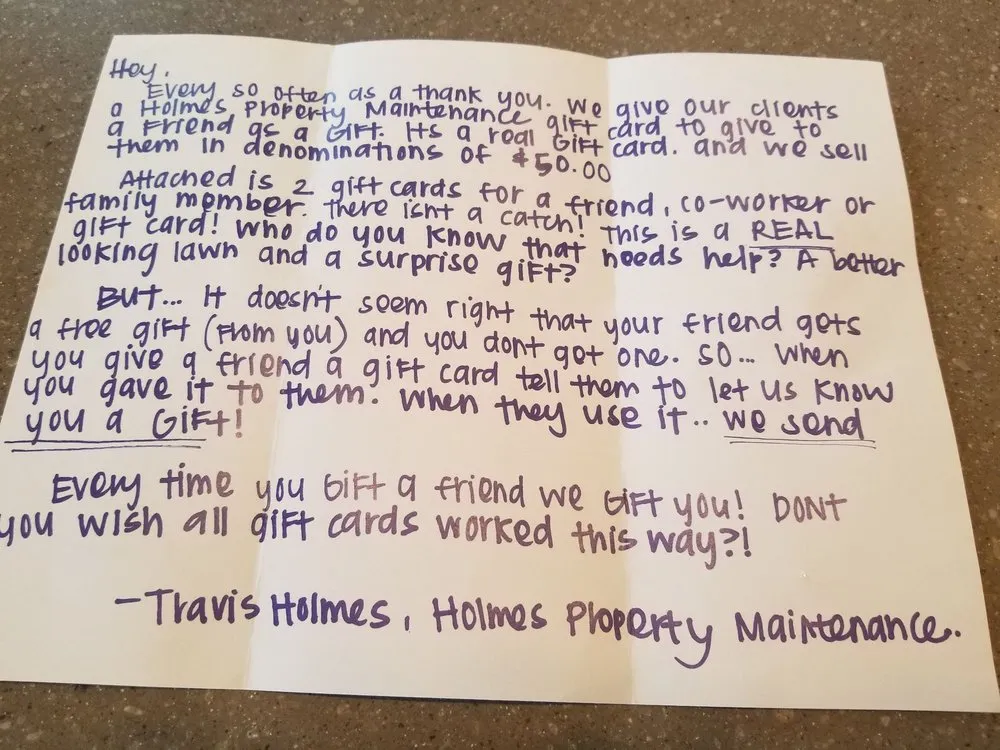 Hey,
Every so often as a thank you. We give our clients
a Holmes Property Maintenance gift card to give to
a Friend as a GIFT. Its a real GIFT card. and we sell
them in denominations of $50.00
Attached is 2 gift cards for a friend, co-worker or
family member. there isnt a catch! This is a REAL
gift card! Who do you know that needs help? A better
looking lawn and a surprise gift?
BUT... It doesn't seem right that your friend gets
a free gift (From you) and you dont get one. SO... When
you give a friend a gift card tell them to let us know
you gave it to them. When they use it.. we send
you a GIFT!
Every time you GIFT a friend we GIFT you! DONT
you wish all gift cards worked this way?!
-Travis Holmes, Holmes Property Maintenance.